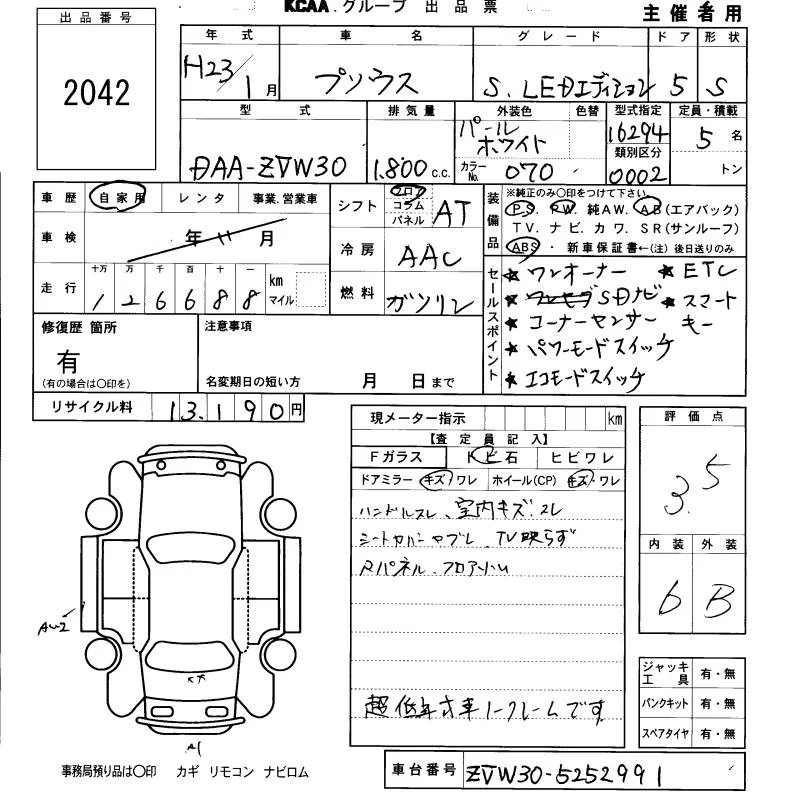 KCAA.グループ 出品票
主催者用
出品番号
2042
年式 車名 グレード ドア 形状
H23/1月 プリウス S.LEDエディション 5 S
型式 排気量 外装色 色替 型式指定 定員・積載
DAA-ZVW30 1.800c.c. パールホワイト 16294 5名
カラーNo. 070 類別区分 0002 トン
車歴 自家用 レンタ 事業.営業車
車検 年 月
走行 十万 万 千 百 十 一
1 2 6 6 8 8 km マイル
シフト フロア コラム パネル AT
冷房 AAC
燃料 ガソリン
装備品 ※純正のみ〇印をつけて下さい
P.S. P.W. 純A.W. A.B(エアバック)
T.V. ナビ.カワ.S.R(サンルーフ)
ABS・新車保証書←(注)後日送りのみ
セールスポイント
★ワンオーナー ★ETC
★ワンセグSDナビ ★スマートキー
★コーナーセンサー
★パワーモードスイッチ
★エコモードスイッチ
修復歴 箇所
有
(有の場合は〇印を)
注意事項
名変期日の短い方 月 日まで
リサイクル料 13.190円
現メーター指示 km
【査定員記入】
Fガラス トビ石 ヒビワレ
ドアミラー キズ/ワレ ホイール(CP) キズ・ワレ
ハンドルスレ、室内キズ.
シートカバーヤブレ、TV映らず
Rパネル、フロア
超低年式車ノークレームです
評価点
3.5
内装 外装
6 B
ジャッキ工具 有・無
パンクキット 有・無
スペアタイヤ 有・無
AU2
A1
事務局預り品は〇印 カギ リモコン ナビロム
車台番号 ZVW30-5252991